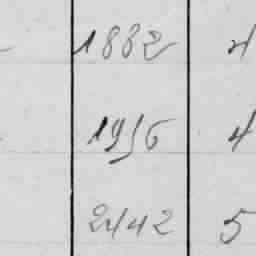 1882 4
1956 4
2442 5